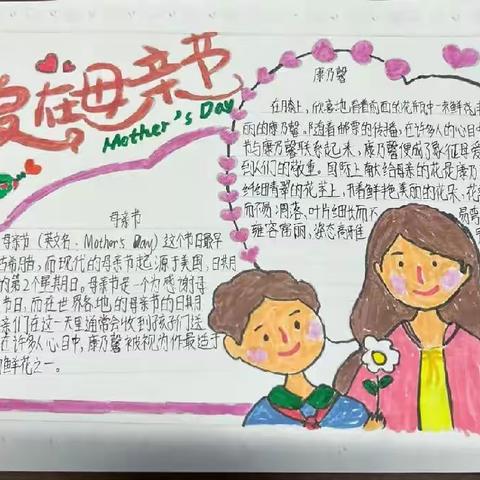 爱在母亲节
Mother's Day
母亲节
母亲节（英文名，Mother's Day）这个节日最早
古希腊，而现代的母亲节起源于美国，日期
的第2个星期日。母亲节是一个为感谢母
节日，而在世界各地的母亲节的日期
亲们在这一天里通常会收到孩子们送
在许多人心目中，康乃馨被视为作最适于
的鲜花之一。
康乃馨
在母亲
丽的康乃馨。随着邮票的传播，在许多人的心目中
节与康乃馨联系起来，康乃馨便成了象征母爱
到人们的敬重。
献给母亲的花是康乃
纤细青翠的花茎上，开着鲜艳美丽的花朵，花
而不易凋落，叶片细长而不
雍容富丽，姿态高雅